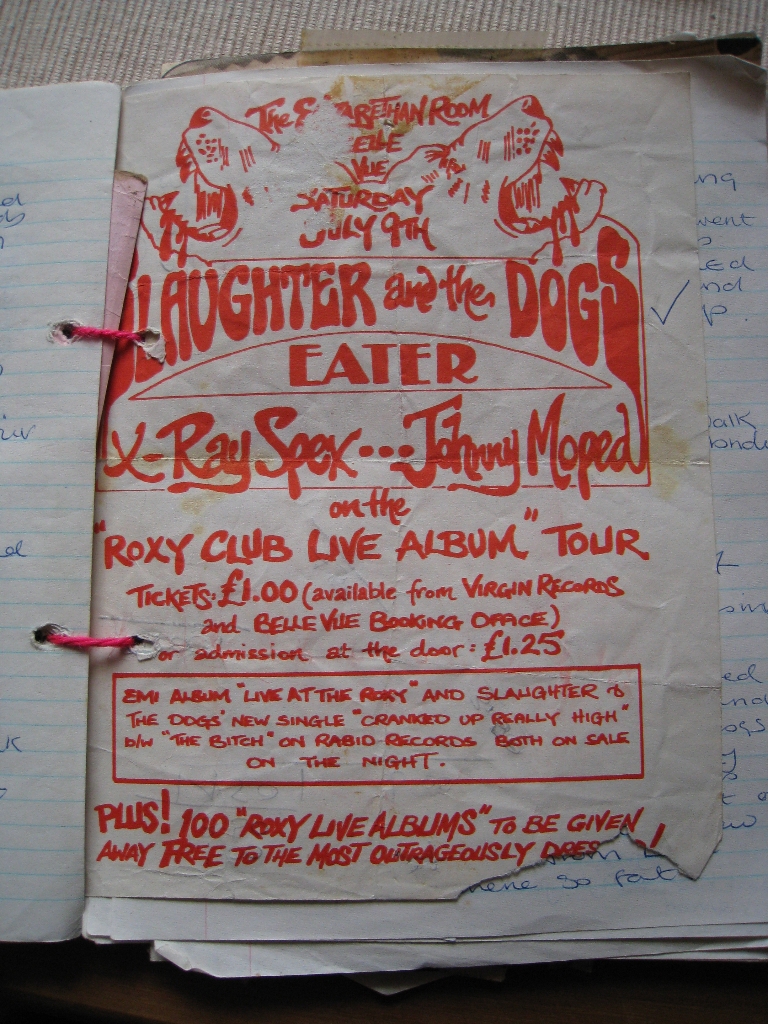 The
ROOM
VUE
SATURDAY
JULY 9TH
LAUGHTER and the DOGS
EATER
X-Ray Spex... Johnny Moped
on the
"ROXY CLUB LIVE ALBUM" TOUR
TICKETS: £1.00 (available from VIRGIN RECORDS
and BELLE VUE BOOKING OFFICE)
or admission at the door: £1.25
EMI ALBUM "LIVE AT THE ROXY" AND SLAUGHTER &
THE DOGS' NEW SINGLE "CRANKED UP REALLY HIGH"
b/w "THE BITCH" ON RABID RECORDS BOTH ON SALE
ON THE NIGHT.
PLUS! 100 "ROXY LIVE ALBUMS" TO BE GIVEN
AWAY FREE TO THE MOST OUTRAGEOUSLY DRES !
so far